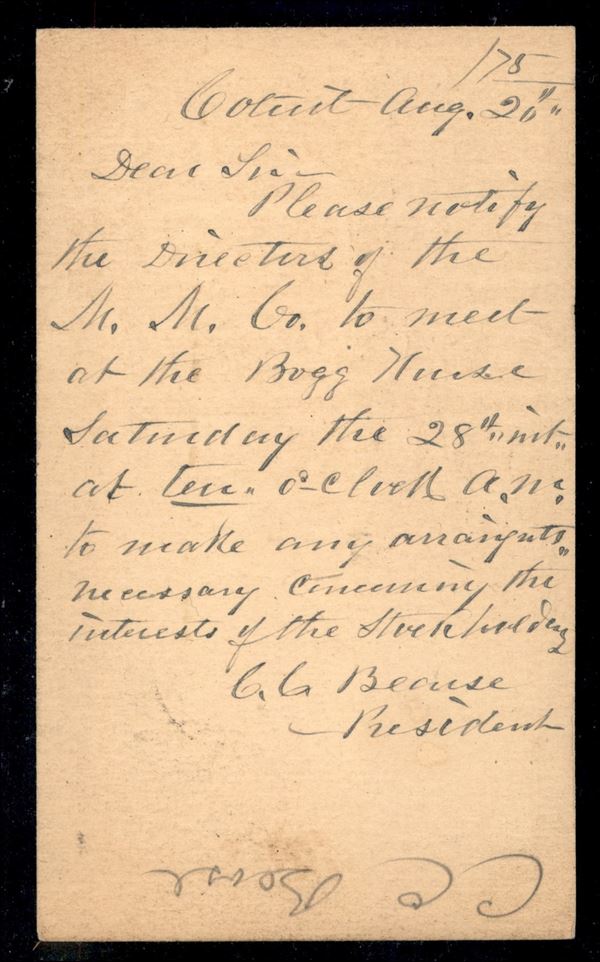 175
Cotuit Aug. 20th"
Dear Sir
Please notify
the Directors of the
M. M. Co. to meet
at the Bogg House
Saturday the 28th" inst"
at ten" o-clock A.M.
to make any
necessary concerning the
interests of the Stockholders
C. C. Bearse
President
C C Bearse